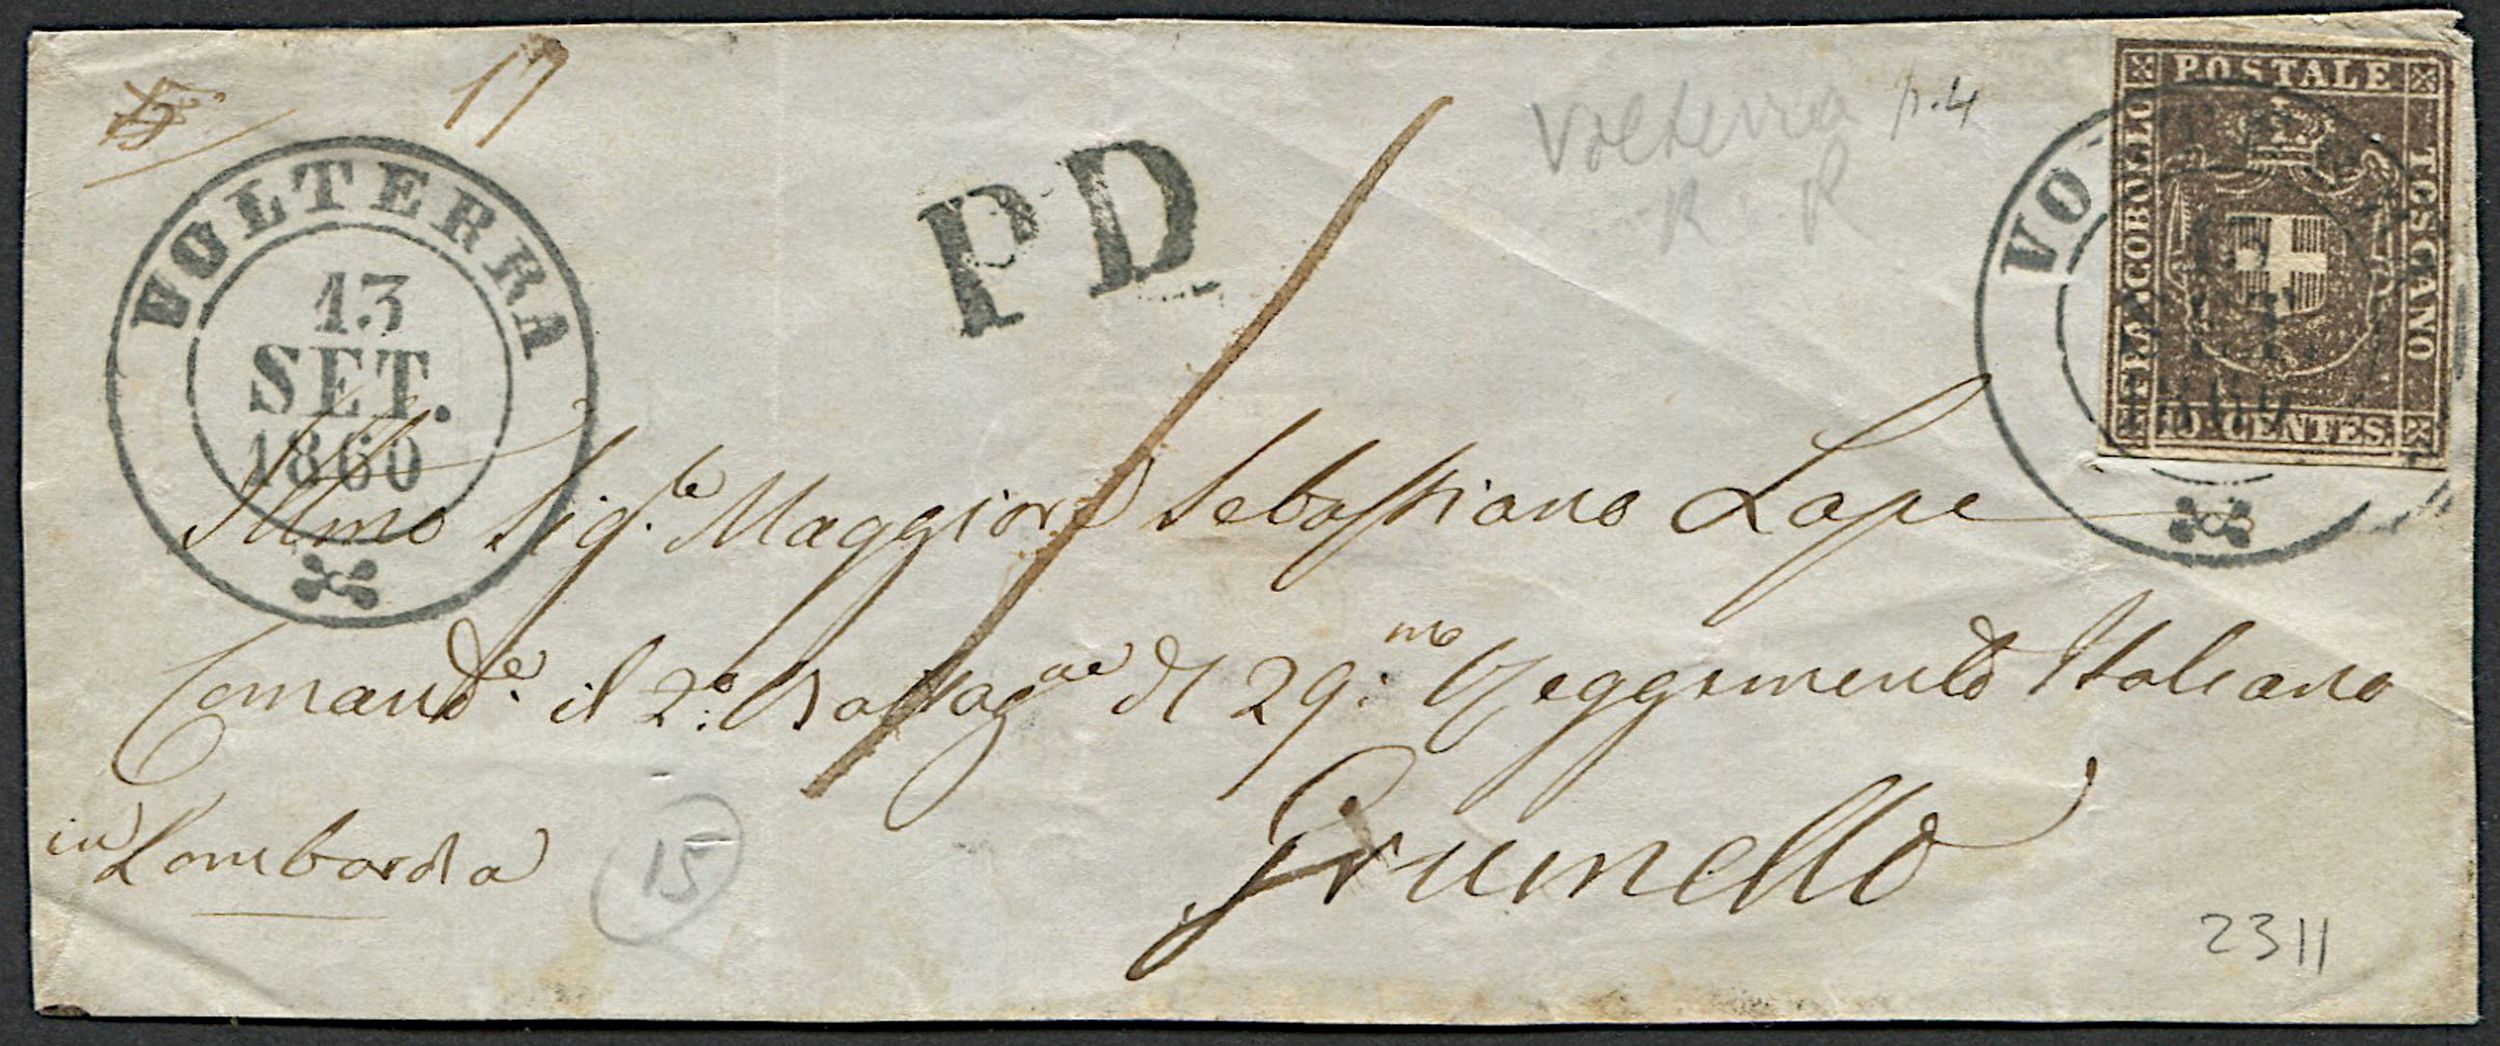 17
VOLTERRA
13
SET.
1860
PD
Volterra p.4
R R
POSTALE
FRANCOBOLLO
TOSCANO
10 CENTES.
VO
Illmo Sig.re Maggiore Sebastiano Lape
Comand.e il 2.o Battag.ne del 29.mo Reggimento Italiano
in Lombardia
Grumello
15
2311